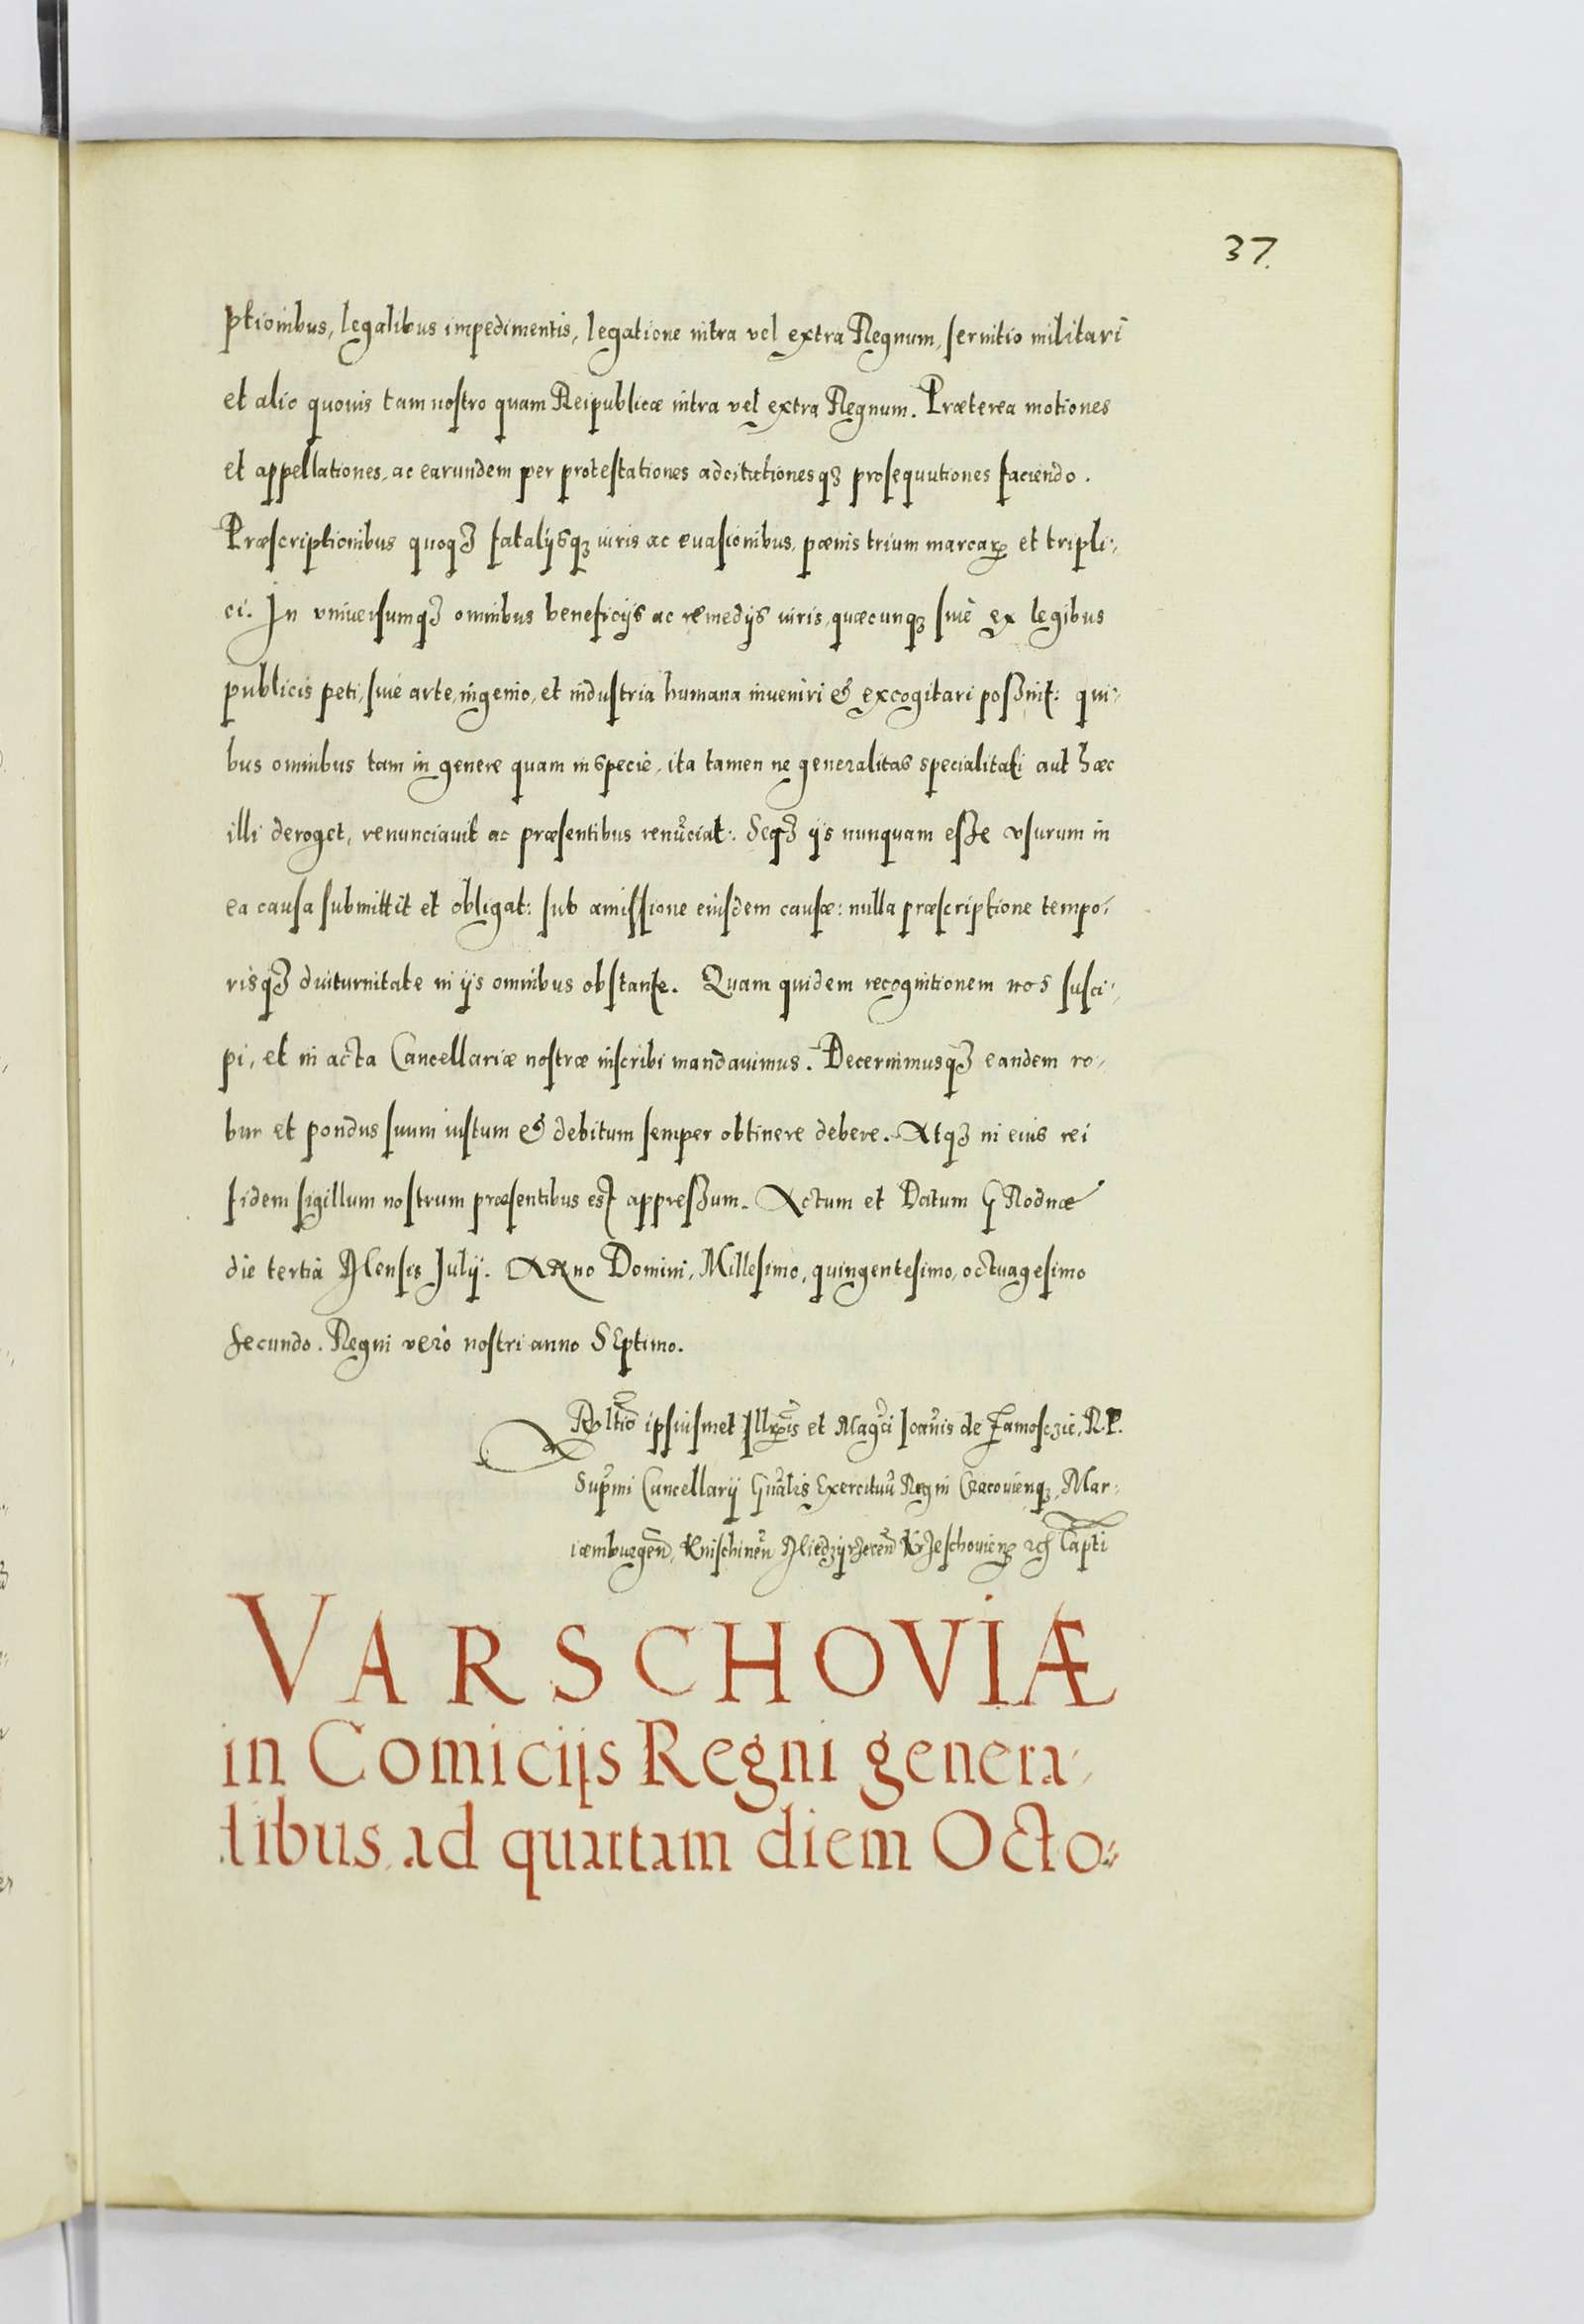 37.
ptionibus, legalibus impedimentis, legatione intra vel extra Regnum, seruitio militari
et alio quouis tam nostro quam Reipublicæ intra vel extra Regnum. Præterea motiones
et appellationes, ac earundem per protestationes adcitationesqȝ prosequutiones faciendo.
Præscriptionibus quoqȝ fatalijsqȝ iuris ac euasionibus, pœnis trium marcaꝝ et tripli-
ci. In vniuersumqȝ omnibus beneficijs ac remedijs iuris, quæcunqȝ siuè ex legibus
publicis peti, siuè arte, ingenio, et industria humana inveniri & excogitari possint: qui-
bus omnibus tam in genere quam in specie, ita tamen ne generalitas specialitati aut hæc
illi deroget, renunciauit ac præsentibus renūciat: Seqȝ ijs nunquam esse vsurum in
ea causa submittit et obligat: sub amissione eiusdem causæ: nulla præscriptione tempo-
risqȝ diuturnitate in ijs omnibus obstante. Quam quidem recognitionem nos susci-
pi, et in acta Cancellariæ nostræ inscribi mandauimus. Decernimusqȝ eandem ro-
bur et pondus suum iustum & debitum semper obtinere debere. Atqȝ in eius rei
fidem sigillum nostrum præsentibus est appressum. Actum et Datum GRodnæ
die tertia Mensis Julij. ANno Domini, Millesimo, quingentesimo, octuagesimo
secundo. Regni verò nostri anno SEptimo.
Rēltio ipsiusmet Illꝛis et Magci Ioānis de Zamosczie, R.P.
Supmi Cancellarij Gnālis Exercituū Regni Cracovienqȝ, Mar-
iæmburgeñ, Knischineñ Miedzyrzeceñ Krzeschovienqȝ etc Capti
VARSCHOVIÆ
in Comicijs Regni genera-
libus ad quartam diem Octo-